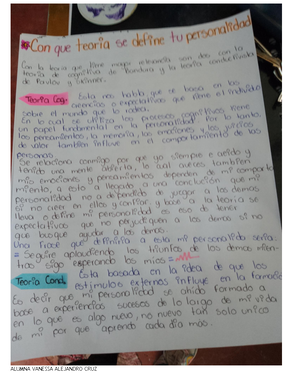 Con que teoría se define tu personalidad
Con la teoría que tiene mayor relevancia son dos con la
teoría de cognitiva de Bandura y la teoría conductista
de Pavlov y Skinner.
Teoría Cog. Esta nos habla que se basa en las
creencias o expectativas que tiene el individuo
sobre el mundo que lo rodea.
En lo cual se utiliza los procesos cognitivos tiene
un papel fundamental en la personalidad. Por lo tanto,
los pensamientos, la memoria, las emociones y los juicios
de valor también influye en el comportamiento de las
personas.
Se relaciona conmigo por que yo siempre e sido y
tenido una mente abierta, lo cual aveces tambien
mis emociones y pensamientos dependen de mi comporta
miento, a esto a llegado a una conclusión que mi
personalidad no a dependido de juzgar a los demas
si no creer en ellos y confiar, y base a la teoría se
lleva o define mi personalidad es eso de tener
expectativas que no perjudiquen a los demas si no
que busque ayudar a los demas.
Una frase que definiría a esta mi personalidad sería:
= Seguire aplaudiendo los triunfos de los demas mien-
tras sigo esperando los mios =
Teoría Cond. Esta basada en la idea de que los
estimulos externos influye en la
Es decir que mi personalidad se ahido formado a
base a experiencias sucesos de lo largo de mi vida
en lo que es algo nuevo, no nuevo tan solo unico
de mi por que aprendo cada día mas.
ALUMNA VANESSA ALEJANDRO CRUZ